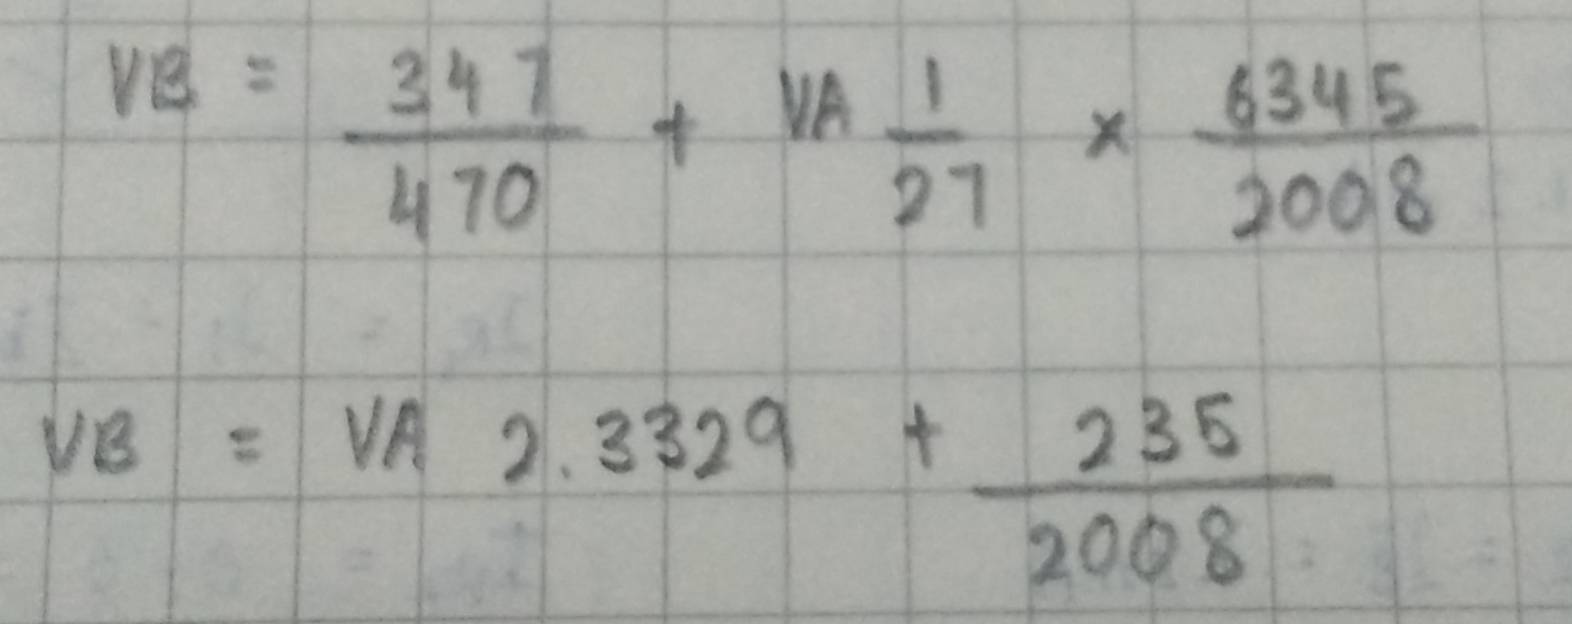 VB = 347/470 + VA 1/27 × 6345/2008
VB = VA 2.3329 + 235/2008